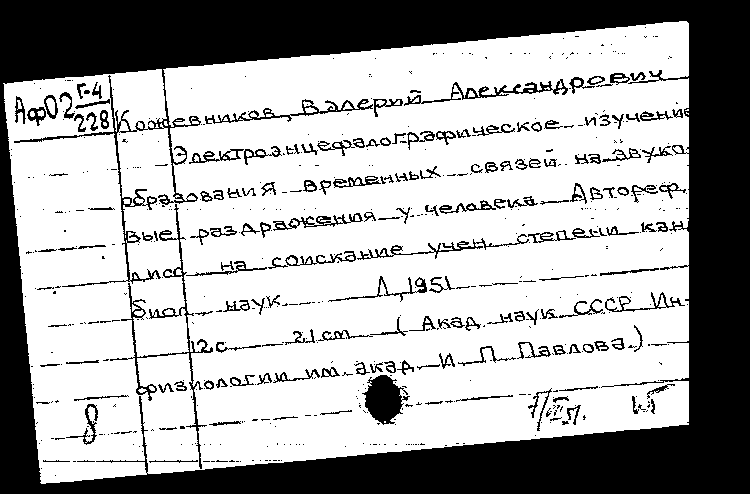 АфО2 Г-4
228
Кожевников, Валерий Александрович
Электроэнцефалографическое изучение
образования временных связей на звуко-
вые раздражения у человека. Автореф.
дисс. на соискание учен. степени кан
биол. наук. Л., 1951
12 с. 21 см (Акад. наук СССР Ин-
физиологии им. акад. И. П. Павлова.)
8